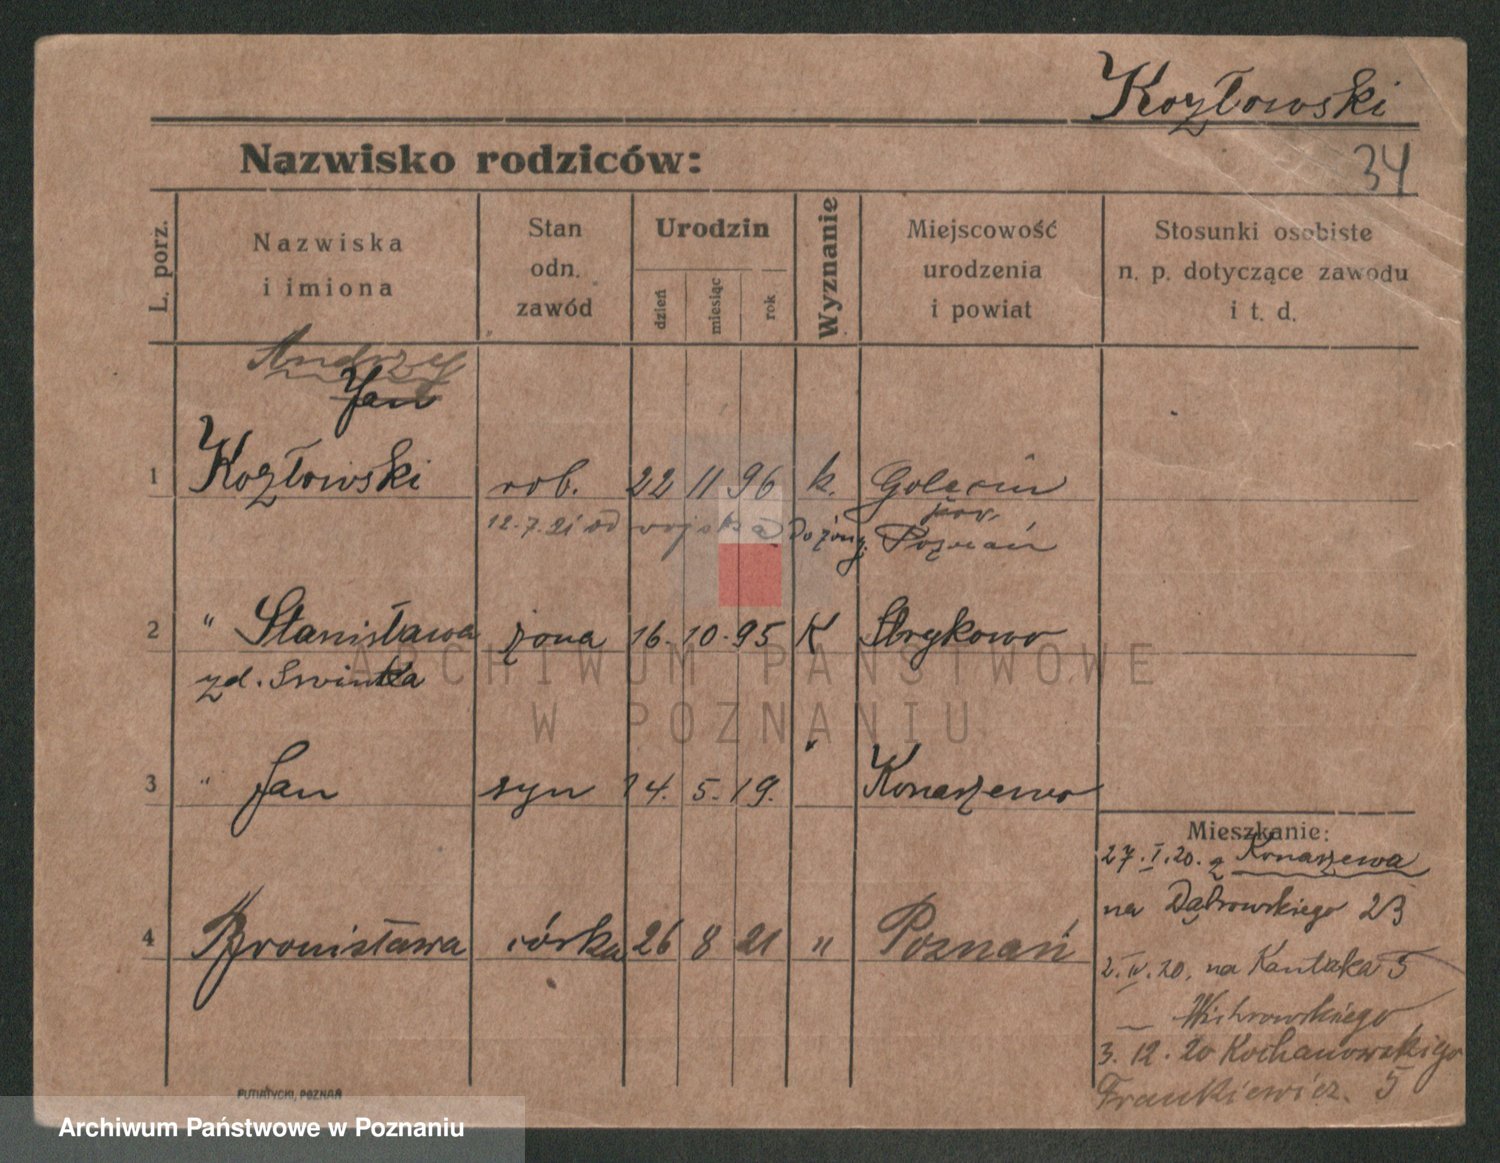 Kozłowski
Nazwisko rodziców:
34
L. porz.
Nazwiska
i imiona
Stan
odn.
zawód
Urodzin
dzień
miesiąc
rok
Wyznanie
Miejscowość
urodzenia
i powiat
Stosunki osobiste
n. p. dotyczące zawodu
i t. d.
Andrzej
Jan
1 Kozłowski rob. 22 11 96 k. Golęcin
pow.
12.7.21 od wojska do żony. Poznań
2 " Stanisława żona 16. 10. 95 K Strykowo
zd. Swintka
3 " Jan syn 14. 5. 19. " Konarzewo
Mieszkanie:
27.I.20. z Konarzewa
na Dąbrowskiego 23
4 Bronisława córka 26 8 21 " Poznań
2.IV.20. na Kantaka 5
3.12.20 Kochanowskiego
Frankiewicz. 5
PUTIATYCKI, POZNAŃ
ARCHIWUM PAŃSTWOWE
W POZNANIU
Archiwum Państwowe w Poznaniu